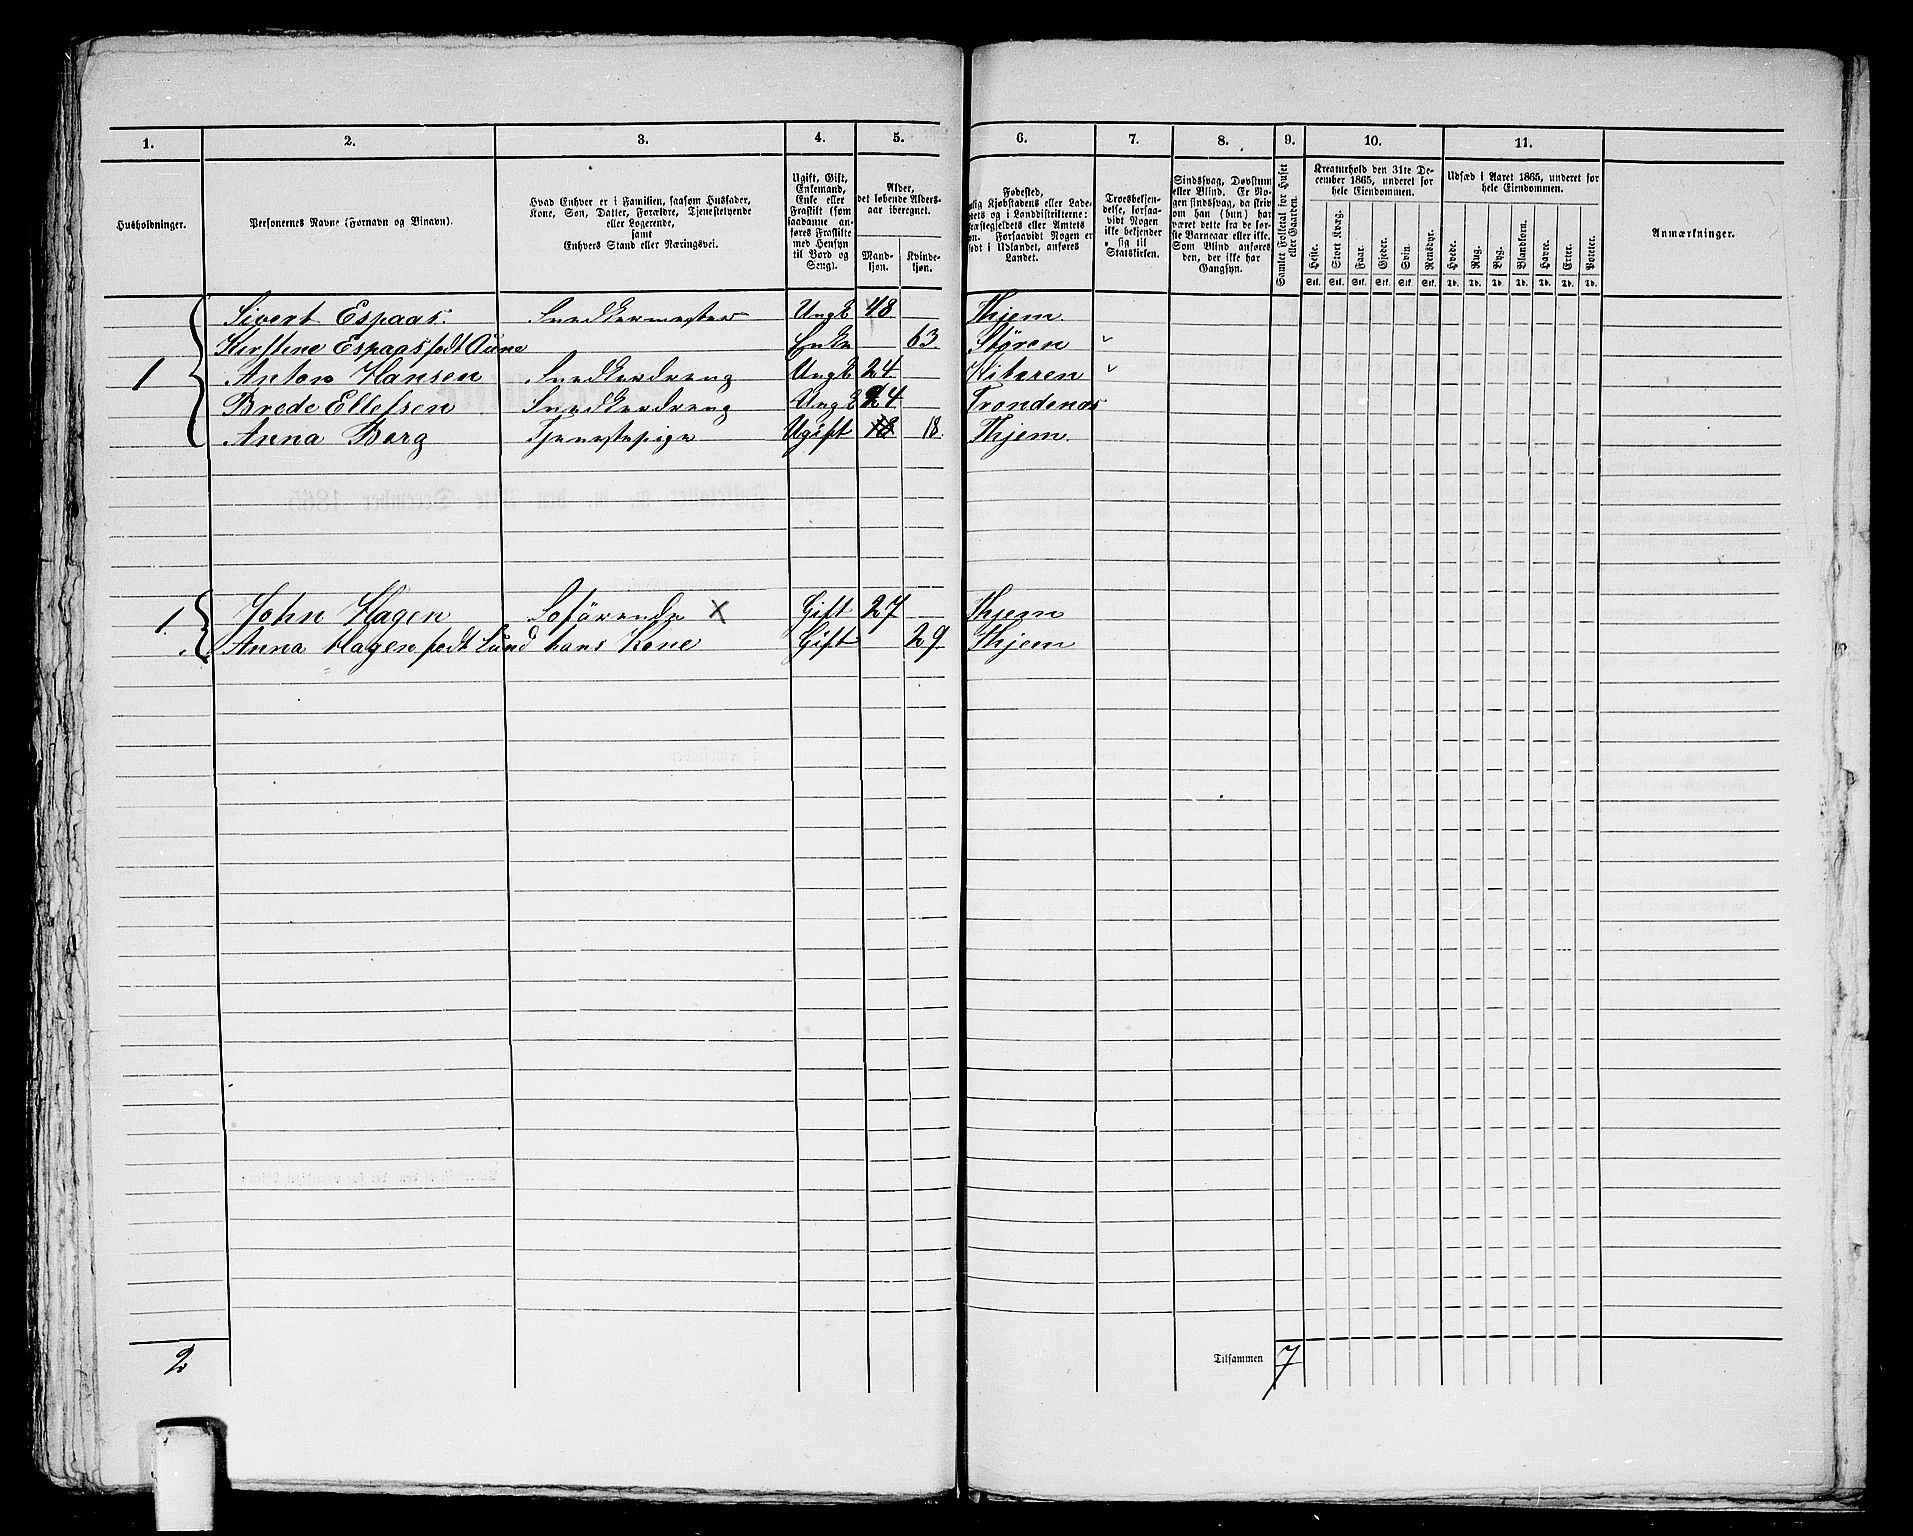 1. 2. 3. 4. 5. 6. 7. 8. 9. 10. 11.
Husholdninger.
Personernes Navne (Fornavn og Tilnavn).
Hvad Enhver er i Familien, saasom Husfader,
Kone, Søn, Datter, Forældre, Tjenestetyende
eller Logerende,
samt
Enhvers Stand eller Næringsvei.
Ugift, Gift,
Enkemand,
Enke eller
Fraskilt (som
saadanne an-
føres Fraskilte
med Hensyn
til Bord og
Seng).
Alder,
det løbende Alders-
aar iberegnet.
Mand-
kjøn.
Kvinde-
kjøn.
Fødested,
lig Kjøbstadens eller Lade-
tets og i Landdistrikterne:
æstegjeldets eller Amtets
n. Forsaavidt Nogen er
ødt i Udlandet, anføres
Landet.
Troesbekjen-
delse, forsaa-
vidt Nogen
ikke bekjender
sig til
Statskirken.
Sindssvag, Døvstum
eller Blind. Er No-
gen sindssvag, da skriv
om han (hun) har
været dette fra de før-
ste Barneaar eller ikke.
Som Blind anføres
den, der ikke har
Gangsyn.
Samlet Folketal for Huset
eller Gaarden.
Kreaturhold den 31te De-
cember 1865, underet for
hele Eiendommen.
Heste. Stort Kvæg. Faar. Gjeder. Svin. Rensdyr.
Stk. Stk. Stk. Stk. Stk. Stk.
Udsæd i Aaret 1865, underet for
hele Eiendommen.
Hvede. Rug. Byg. Blandkorn. Havre. Erter. Poteter.
Td. Td. Td. Td. Td. Td. Td.
Anmærkninger.
Sivert Espaas. Snedkermester Ungk 48 Thjem
Kirstine Espaas født Aune Enke 63 Støren
1 Anton Hansen Snedkerdreng Ungk 24 Hiteren
Brede Ellefsen Snedkerdreng Ungk 24 Trondenæs
Anna Berg Tjenestepige Ugift 18 18 Thjem
1. John Hagen Søfarende x Gift 27 Thjem
Anna Hagen født Lund hans Kone Gift 29 Thjem
2
Tilsammen 7